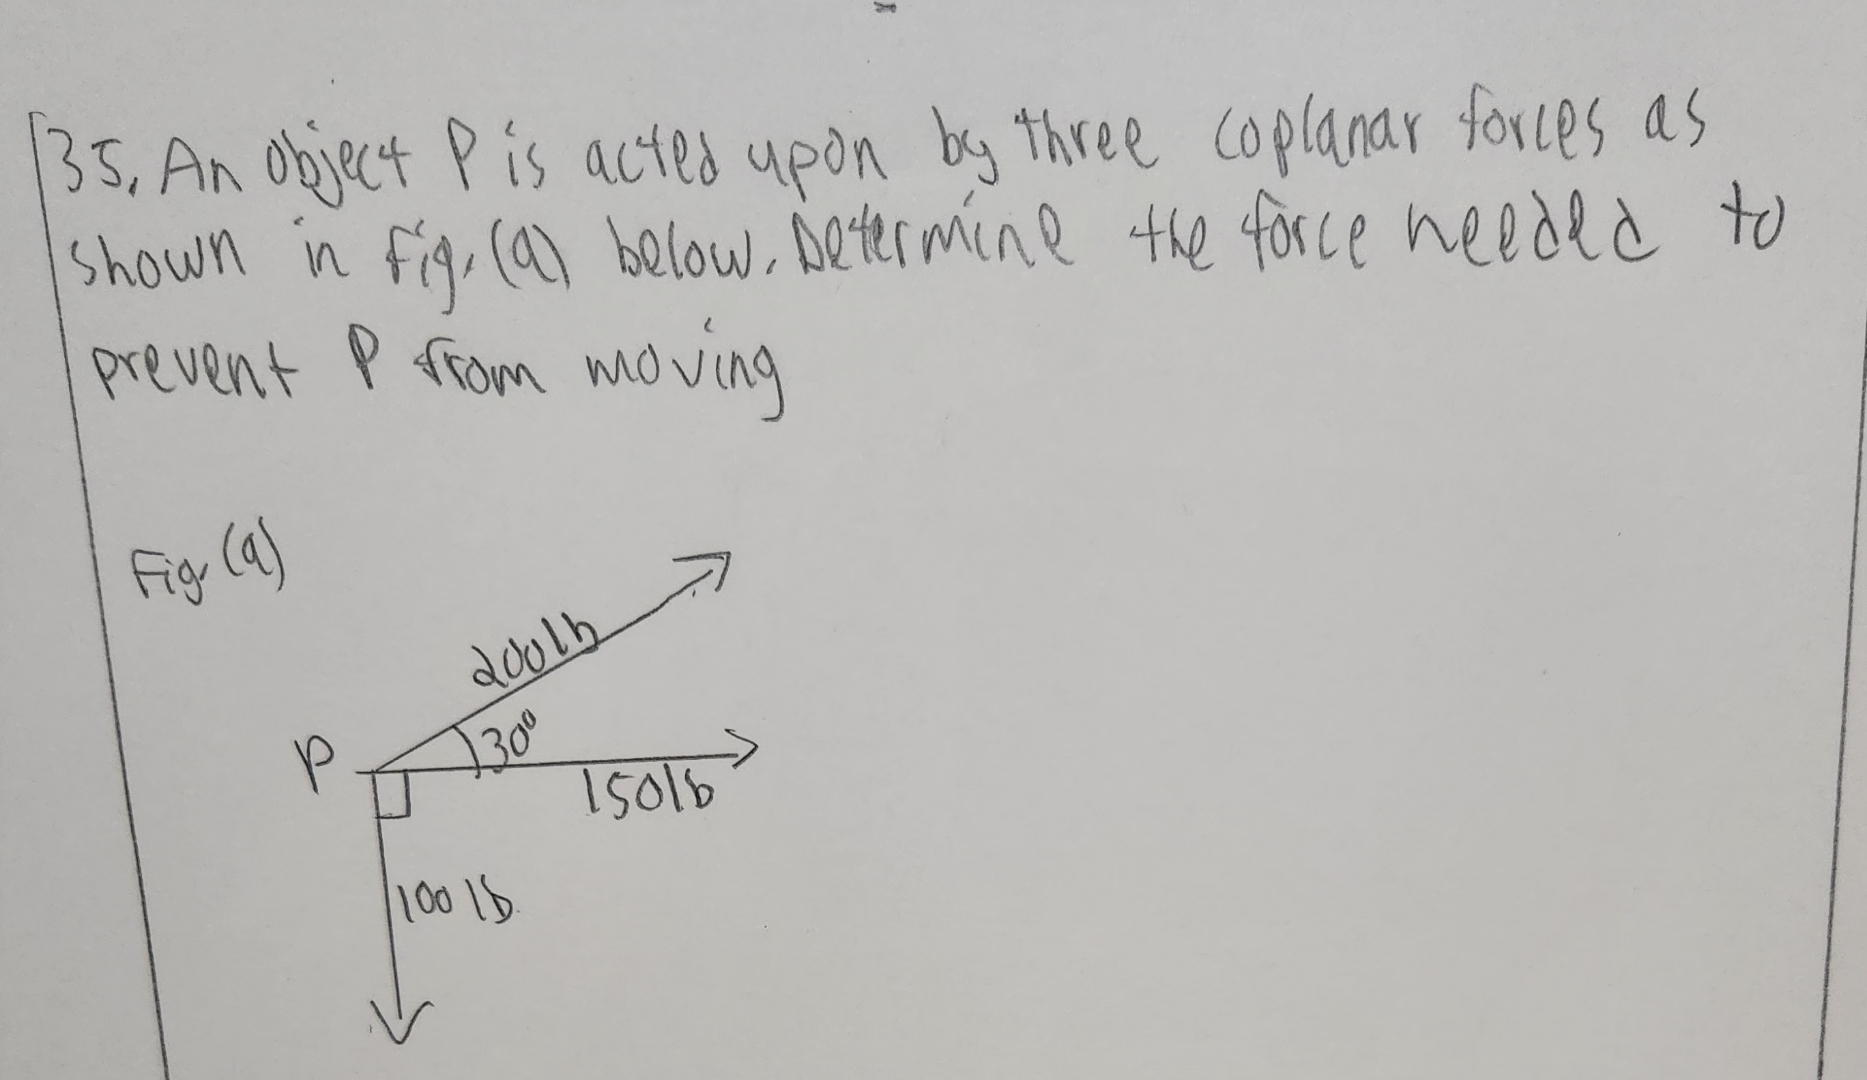 35. An object P is acted upon by three coplanar forces as
shown in fig. (a) below. Determine the force needed to
prevent P from moving
Fig. (a)
200lb
30°
P
150lb
100 lb